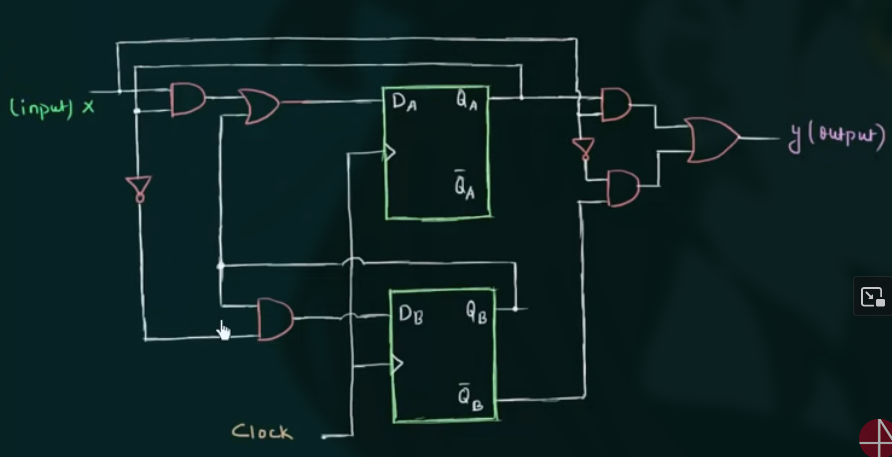 (input) x
D_A Q_A
Q̅_A
y (output)
D_B Q_B
Q̅_B
Clock